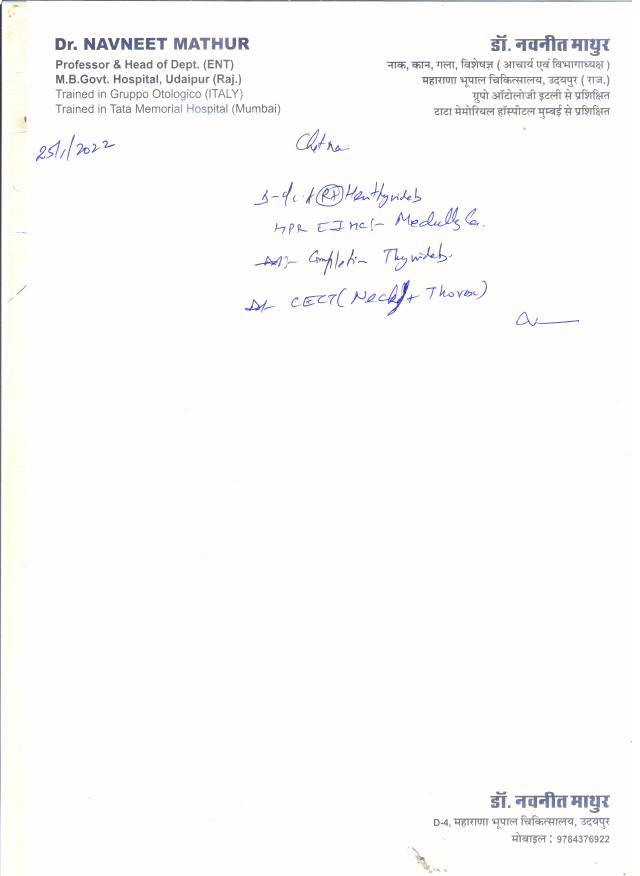 Dr. NAVNEET MATHUR
Professor & Head of Dept. (ENT)
M.B.Govt. Hospital, Udaipur (Raj.)
Trained in Gruppo Otologico (ITALY)
Trained in Tata Memorial Hospital (Mumbai)
डॉ. नवनीत माथुर
नाक, कान, गला, विशेषज्ञ ( आचार्य एवं विभागाध्यक्ष )
महाराणा भूपाल चिकित्सालय, उदयपुर ( राज.)
ग्रुपो ऑटोलोजी इटली से प्रशिक्षित
टाटा मेमोरियल हॉस्पीटल मुम्बई से प्रशिक्षित
25/1/2022
Chetna
(Rt)
HPR
CECT (Neck + Thorax)
डॉ. नवनीत माथुर
D-4, महाराणा भूपाल चिकित्सालय, उदयपुर
मोबाइल : 9784376922